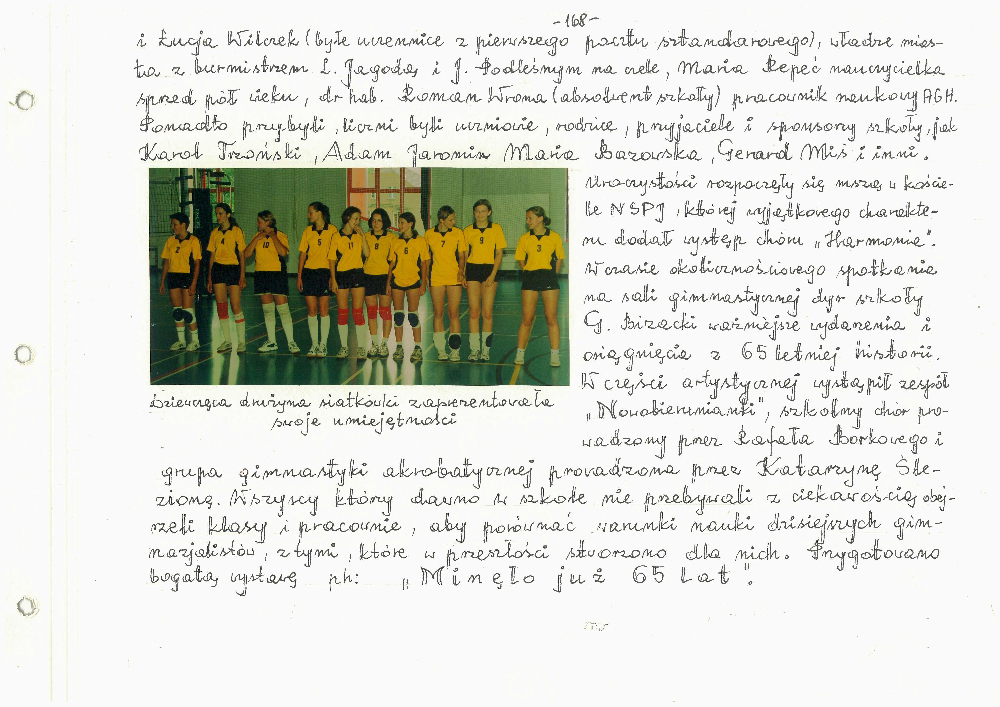 -168-
i Łucja Wilczek (byłe uczennice z pierwszego pocztu sztandarowego), władze mias-
ta z burmistrzem L. Jagodą i J. Podleśnym na czele, Maria Repeć nauczycielka
sprzed pół wieku, dr hab. Roman Wrona (absolwent szkoły) pracownik naukowy AGH.
Ponadto przybyli, liczni byli uczniowie, rodzice, przyjaciele i sponsorzy szkoły, jak
Karol Trzoński, Adam Jaromin Maria Bazowska, Gerard Miś i inni.
Uroczystości rozpoczęły się mszą w koście-
le NSPJ, której wyjątkowego charakte-
ru dodał występ chóru „Harmonia".
W czasie okolicznościowego spotkania
na sali gimnastycznej dyr szkoły
G. Bizacki ważniejsze wydarzenia i
osiągnięcia z 65 letniej historii.
W części artystycznej wystąpił zespół
„Nowobierunianki", szkolny chór pro-
wadzony przez Rafała Borkowego i
Dziewczęca drużyna siatkówki zaprezentowała
swoje umiejętności
grupa gimnastyki akrobatycznej prowadzona przez Katarzynę Śle-
zioną. Wszyscy który dawno w szkole nie przebywali z ciekawością obej-
rzeli klasy i pracownie, aby porównać warunki nauki dzisiejszych gim-
nazjalistów, z tymi, które w przeszłości stworzono dla nich. Przygotowano
bogatą wystawę ph: „Minęło już 65 lat".